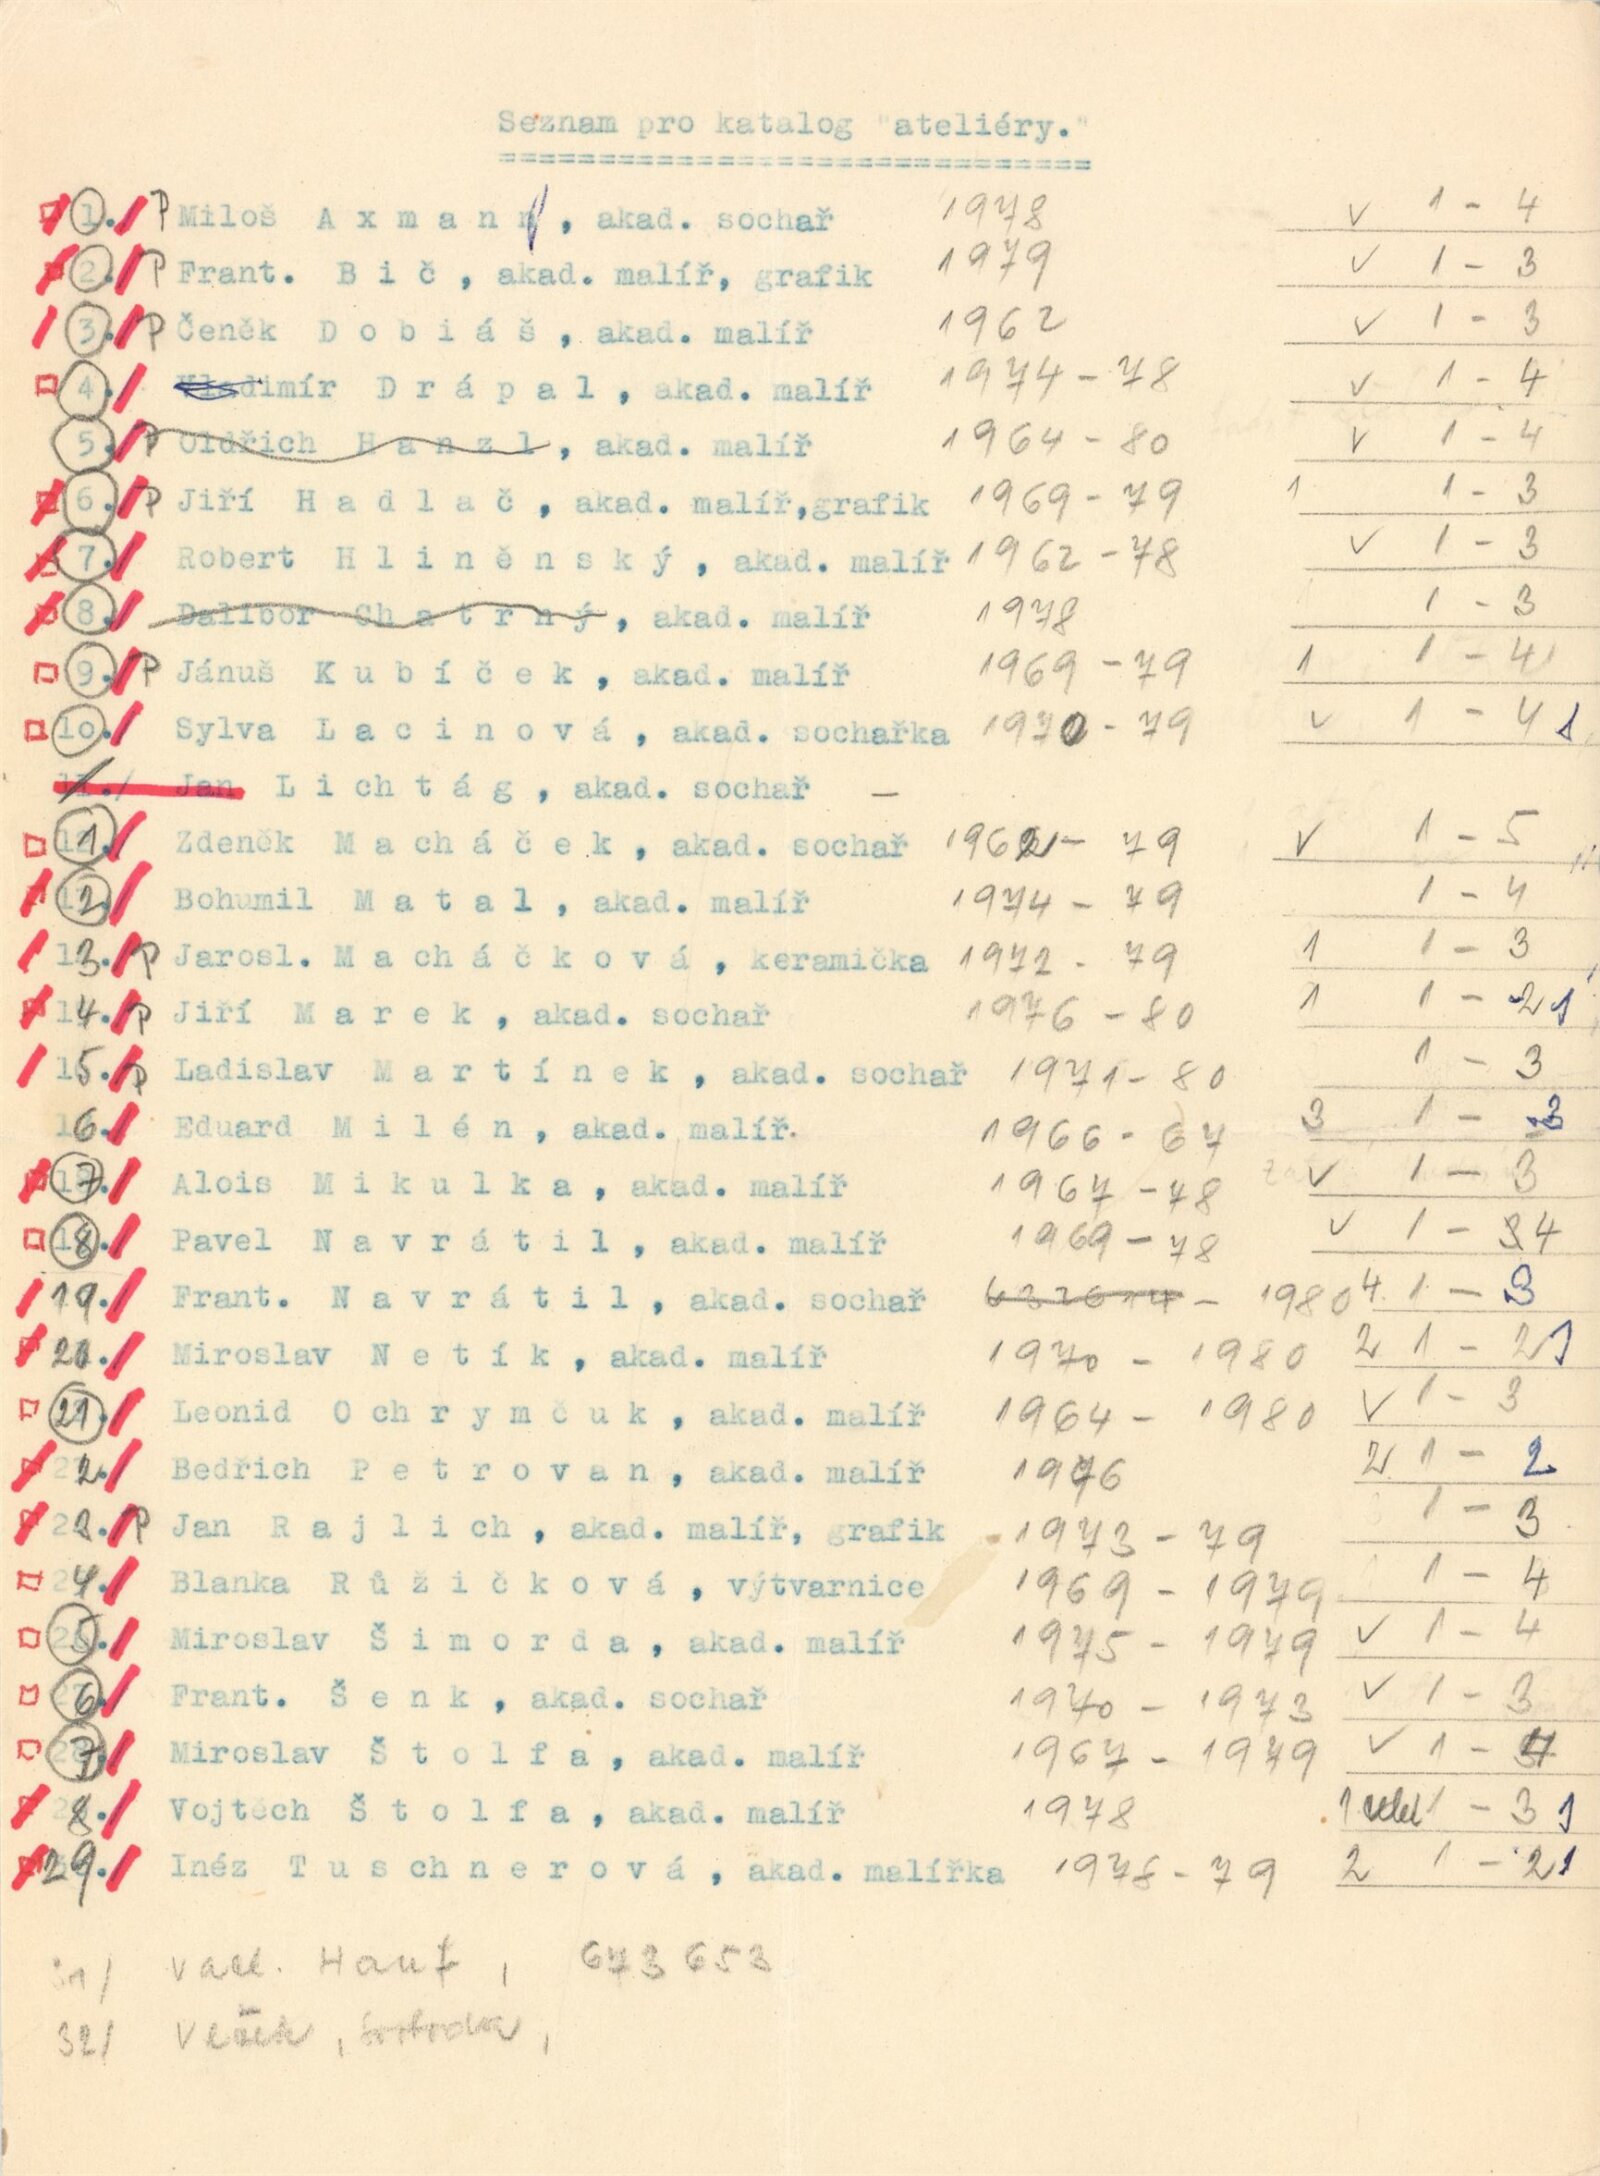 Seznam pro katalog "ateliéry."
==============================
1./ P Miloš A x m a n n , akad. sochař 1978 v 1 - 4
2./ P Frant. B i č , akad. malíř, grafik 1979 v 1 - 3
3./ P Čeněk D o b i á š , akad. malíř 1962 v 1 - 3
4./ Vladimír D r á p a l , akad. malíř 1974 - 78 v 1 - 4
5./ P Oldřich H a n z l , akad. malíř 1964 - 80 v 1 - 4
6./ P Jiří H a d l a č , akad. malíř,grafik 1969 - 79 1 1 - 3
7./ Robert H l i n ě n s k ý , akad. malíř 1962 - 78 v 1 - 3
8./ Dalibor Ch a t r n ý , akad. malíř 1978 1 - 3
9./ P Jánuš K u b í č e k , akad. malíř 1969 - 79 1 1 - 4
10./ Sylva L a c i n o v á , akad. sochařka 1970 - 79 v 1 - 4 1
11./ Jan L i ch t á g , akad. sochař -
1./ Zdeněk M a ch á č e k , akad. sochař 1962 - 79 v 1 - 5
12./ Bohumil M a t a l , akad. malíř 1974 - 79 1 - 4
13./ P Jarosl. M a ch á č k o v á , keramička 1972 - 79 1 1 - 3
14./ P Jiří M a r e k , akad. sochař 1976 - 80 1 1 - 2 1
15./ P Ladislav M a r t í n e k , akad. sochař 1971 - 80 1 - 3
16./ Eduard M i l é n , akad. malíř. 1966 - 67 3 1 - 3
17./ Alois M i k u l k a , akad. malíř 1967 - 78 v 1 - 3
18./ Pavel N a v r á t i l , akad. malíř 1969 - 78 v 1 - 3 4
19./ Frant. N a v r á t i l , akad. sochař - 1980 4 1 - 3
20./ Miroslav N e t í k , akad. malíř 1970 - 1980 2 1 - 2 1
21./ Leonid O ch r y m č u k , akad. malíř 1964 - 1980 v 1 - 3
22./ Bedřich P e t r o v a n , akad. malíř 1976 2 1 - 2
23./ P Jan R a j l i ch , akad. malíř, grafik 1973 - 79 1 - 3
24./ Blanka R ů ž i č k o v á , výtvarnice 1969 - 1979 1 - 4
25./ Miroslav Š i m o r d a , akad. malíř 1975 - 1979 v 1 - 4
26./ Frant. Š e n k , akad. sochař 1970 - 1973 v 1 - 3
27./ Miroslav Š t o l f a , akad. malíř 1967 - 1979 v 1 - 4
28./ Vojtěch Š t o l f a , akad. malíř 1978 1 1 - 3 1
29./ Inéz T u s ch n e r o v á , akad. malířka 1978 - 79 2 1 - 2 1
31/ Vacl. Hauf , 673 653
32/